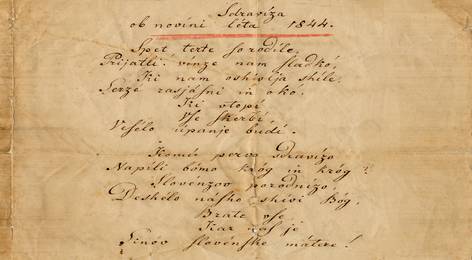 Sdravíza
ob novíni léta 1844.
Spet terte so rodile,
Prijatli! vínze nam sladkó,
Ki nam oshivlja shile,
Serzé rasjásni in okó.
Ki vtopí
Vse skerbí
Vesélo úpanje budí.
Komú pervo sdravízo
Napíli bómo króg in króg?
Slovénzov porodnízo!
Deshélo násho shívi Bóg,
Brate vse
Kar nas je
Sinov slovénshe mátere!